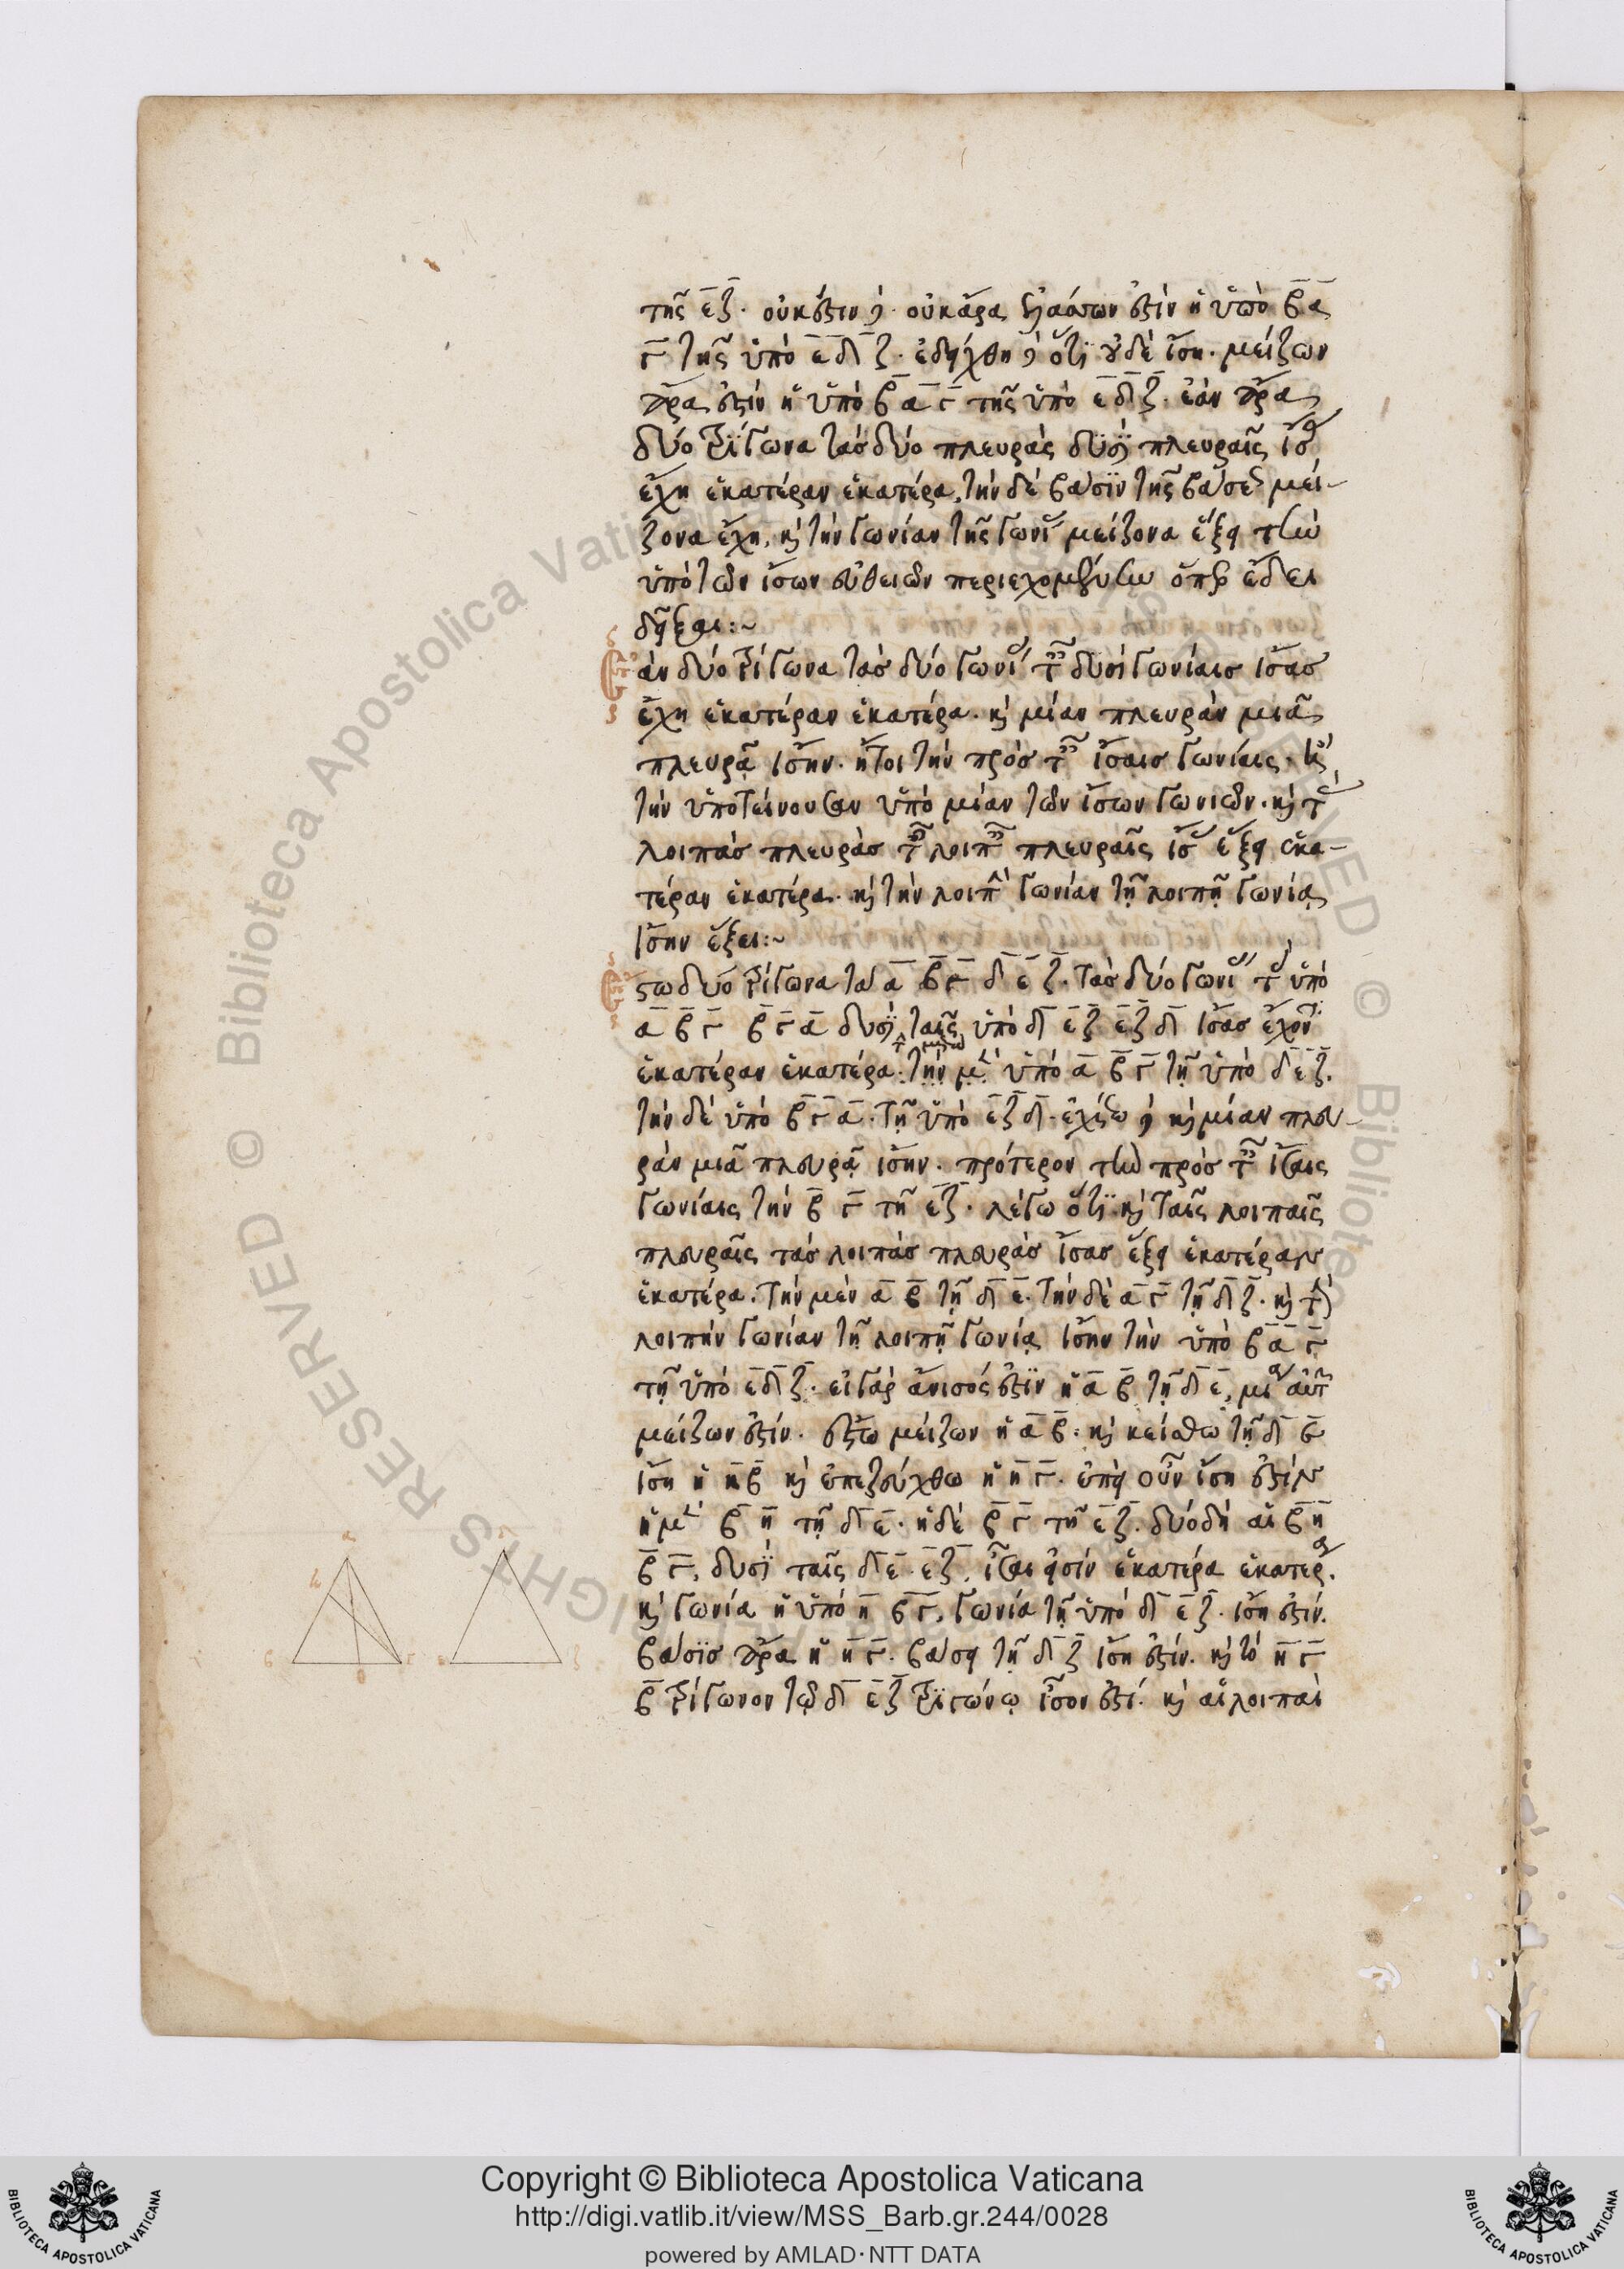 της εζ· οὐκ ἔστιν δέ· οὐκ ἄρα ἐλάσσων ἐστὶν ἡ ὑπὸ βα
γ τῆς ὑπὸ εδζ· ἐδείχθη δὲ ὅτι οὐδὲ ἴση· μείζων
ἄρα ἐστὶν ἡ ὑπὸ βαγ τῆς ὑπὸ εδζ· ἐὰν ἄρα
δύο τρίγωνα τὰς δύο πλευρὰς δυσὶ πλευραῖς ἴσας
ἔχη ἑκατέραν ἑκατέρα, τὴν δὲ βάσιν τῆς βάσεως μεί-
ζονα ἔχη, καὶ τὴν γωνίαν τῆς γωνίας μείζονα ἕξει τὴν
ὑπὸ τῶν ἴσων εὐθειῶν περιεχομένην ὅπερ ἔδει
δεῖξαι:~
Ἐὰν δύο τρίγωνα τὰς δύο γωνίας ταῖς δυσὶ γωνίαις ἴσας
ἔχη ἑκατέραν ἑκατέρα· καὶ μίαν πλευρὰν μιᾶ
πλευρᾷ ἴσην· ἤτοι τὴν πρὸς ταῖς ἴσαις γωνίαις· ἢ
τὴν ὑποτείνουσαν ὑπὸ μίαν τῶν ἴσων γωνιῶν· καὶ τὰς
λοιπὰς πλευρὰς ταῖς λοιπαῖς πλευραῖς ἴσας ἕξει ἑκα-
τέραν ἑκατέρα· καὶ τὴν λοιπὴν γωνίαν τῇ λοιπῇ γωνίᾳ
ἴσην ἕξει:~
Ἔστω δύο τρίγωνα τὰ αβγ δεζ· τὰς δύο γωνίας τὰς ὑπὸ
αβγ βγα δυσὶ ταῖς ὑπὸ δεζ εζδ ἴσας ἔχοντα
ἑκατέραν ἑκατέρα· τὴν μὲν ὑπὸ αβγ τῇ ὑπὸ δεζ.
τὴν δὲ ὑπὸ βγα· τῇ ὑπὸ εζδ· ἐχέτω δὲ καὶ μίαν πλευ-
ρὰν μιᾷ πλευρᾷ ἴσην· πρότερον τὴν πρὸς ταῖς ἴσαις
γωνίαις τὴν βγ τῇ εζ· λέγω ὅτι καὶ ταῖς λοιπαῖς
πλευραῖς τὰς λοιπὰς πλευρὰς ἴσας ἕξει ἑκατέραν
ἑκατέρα· τὴν μὲν αβ τῇ δε· τὴν δὲ αγ τῇ δζ· καὶ τὴν
λοιπὴν γωνίαν τῇ λοιπῇ γωνίᾳ ἴσην τὴν ὑπὸ βαγ
τῇ ὑπὸ εδζ· εἰ γὰρ ἄνισός ἐστιν ἡ αβ τῇ δε, μία αὐτῶν
μείζων ἐστίν· ἔστω μείζων ἡ αβ· καὶ κείσθω τῇ δε
ἴση ἡ ηβ καὶ ἐπεζεύχθω ἡ ηγ· ἐπεὶ οὖν ἴση ἐστὶν
ἡ μὲν βη τῇ δε· ἡ δὲ βγ τῇ εζ· δύο δὴ αἱ βη
βγ, δυσὶ ταῖς δε εζ, ἴσαι εἰσὶν ἑκατέρα ἑκατέρα.
καὶ γωνία ἡ ὑπὸ ηβγ, γωνία τῇ ὑπὸ δεζ· ἴση ἐστίν.
βάσις ἄρα ἡ ηγ· βάσει τῇ δζ ἴση ἐστίν· καὶ τὸ ηγ
β τρίγωνον τῷ δεζ τριγώνῳ ἴσον ἐστί· καὶ αἱ λοιπαὶ
α
η
β
θ
γ
δ
ε
ζ
Copyright © Biblioteca Apostolica Vaticana
http://digi.vatlib.it/view/MSS_Barb.gr.244/0028
powered by AMLAD·NTT DATA
BIBLIOTECA APOSTOLICA VATICANA
BIBLIOTECA APOSTOLICA VATICANA